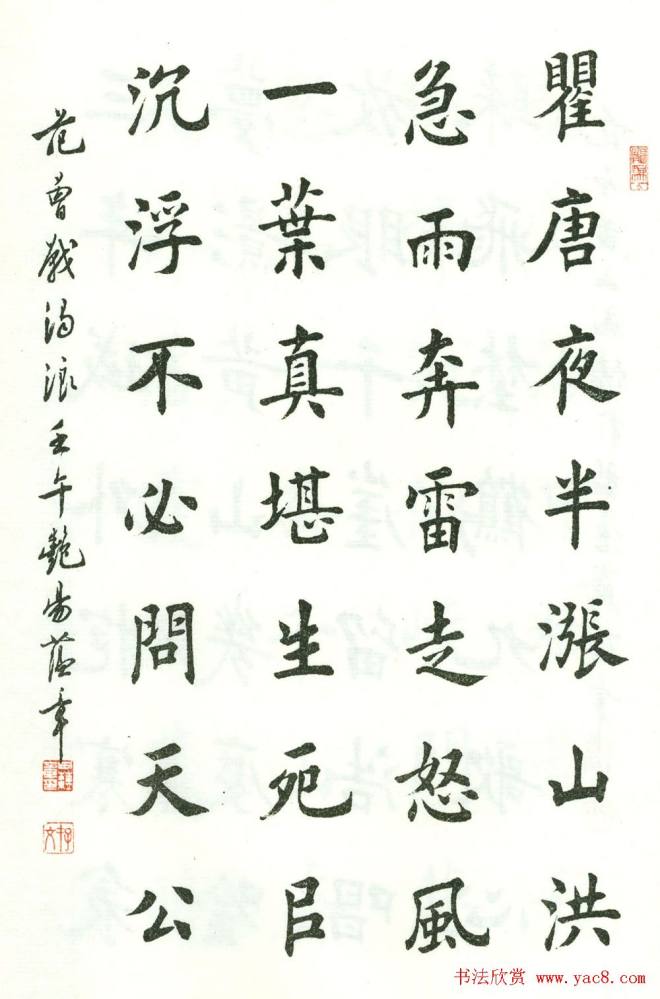 瞿唐夜半漲山洪
急雨奔雷走怒風
一葉真堪生死㠯
沉浮不必問天公
范曾戰濁浪壬午艷陽
书法欣赏 www.yac8.com